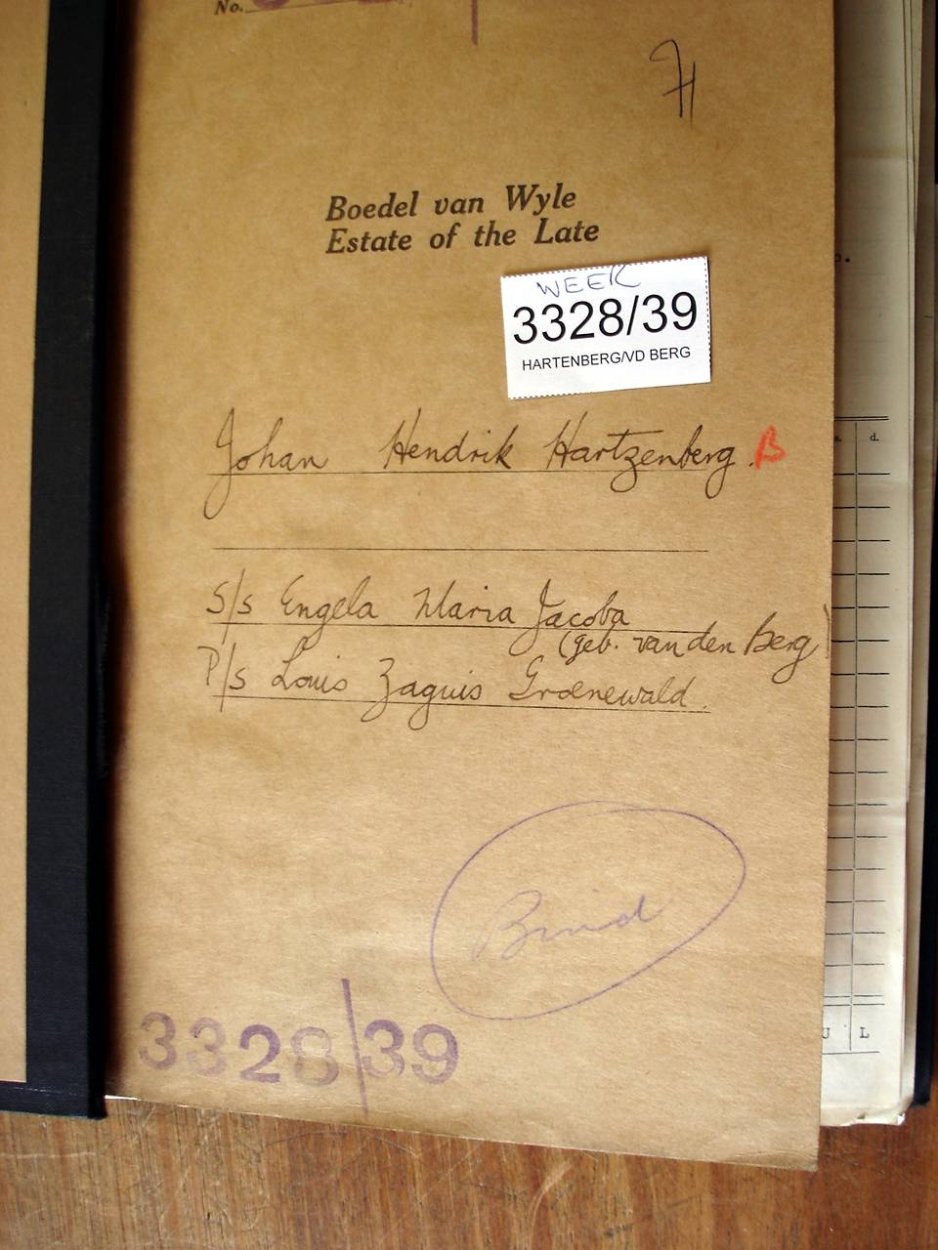 No.
H
Boedel van Wyle
Estate of the Late
WEEK
3328/39
HARTENBERG/VD BERG
Johan Hendrik Hartzenberg. B
S/s Engela Maria Jacoba
(geb. van den Berg)
P/s Louis Zaguis Groenewald.
Bind
3328/39
d.
U L